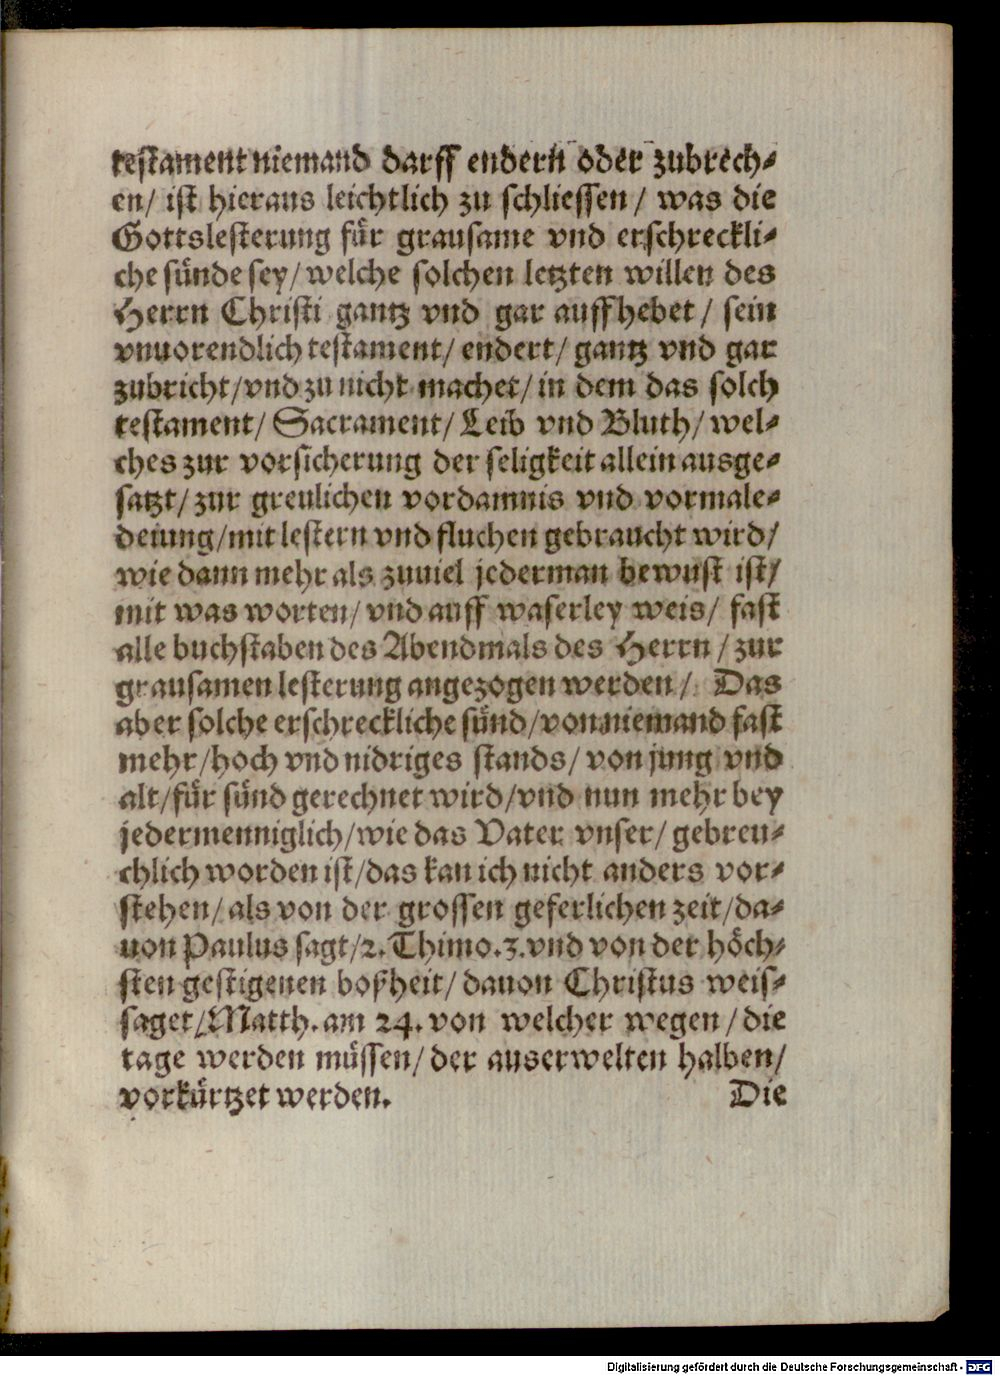 testament niemand darff endern oder zubrech⸗
en/ ist hieraus leichtlich zu schliessen/ was die
Gottslesterung für grausame vnd erschreckli⸗
che sünde sey/ welche solchen letzten willen des
Herrn Christi gantz vnd gar auffhebet/ sein
vnuorendlich testament/ endert/ gantz vnd gar
zubricht/ vnd zu nicht machet/ in dem das solch
testament/ Sacrament/ Leib vnd Bluth/ wel⸗
ches zur vorsicherung der seligkeit allein ausge⸗
satzt/ zur greulichen vordamnis vnd vormale⸗
deiung/ mit lestern vnd fluchen gebraucht wird/
wie dann mehr als zuuiel jederman bewust ist/
mit was worten/ vnd auff waserley weis/ fast
alle buchstaben des Abendmals des Herrn/ zur
grausamen lesterung angezogen werden/ Das
aber solche erschreckliche sünd/ von niemand fast
mehr/ hoch vnd nidriges stands/ von jung vnd
alt/ für sünd gerechnet wird/ vnd nun mehr bey
jedermenniglich/ wie das Vater vnser/ gebreu⸗
chlich worden ist/ das kan ich nicht anders vor⸗
stehen/ als von der grossen geferlichen zeit/ da⸗
uon Paulus sagt/ 2. Thimo. 3. vnd von der höch⸗
sten gestigenen boßheit/ dauon Christus weis⸗
saget/ Matth. am 24. von welcher wegen/ die
tage werden müssen/ der auserwelten halben/
vorkürtzet werden. Die
Digitalisierung gefördert durch die Deutsche Forschungsgemeinschaft - DFG